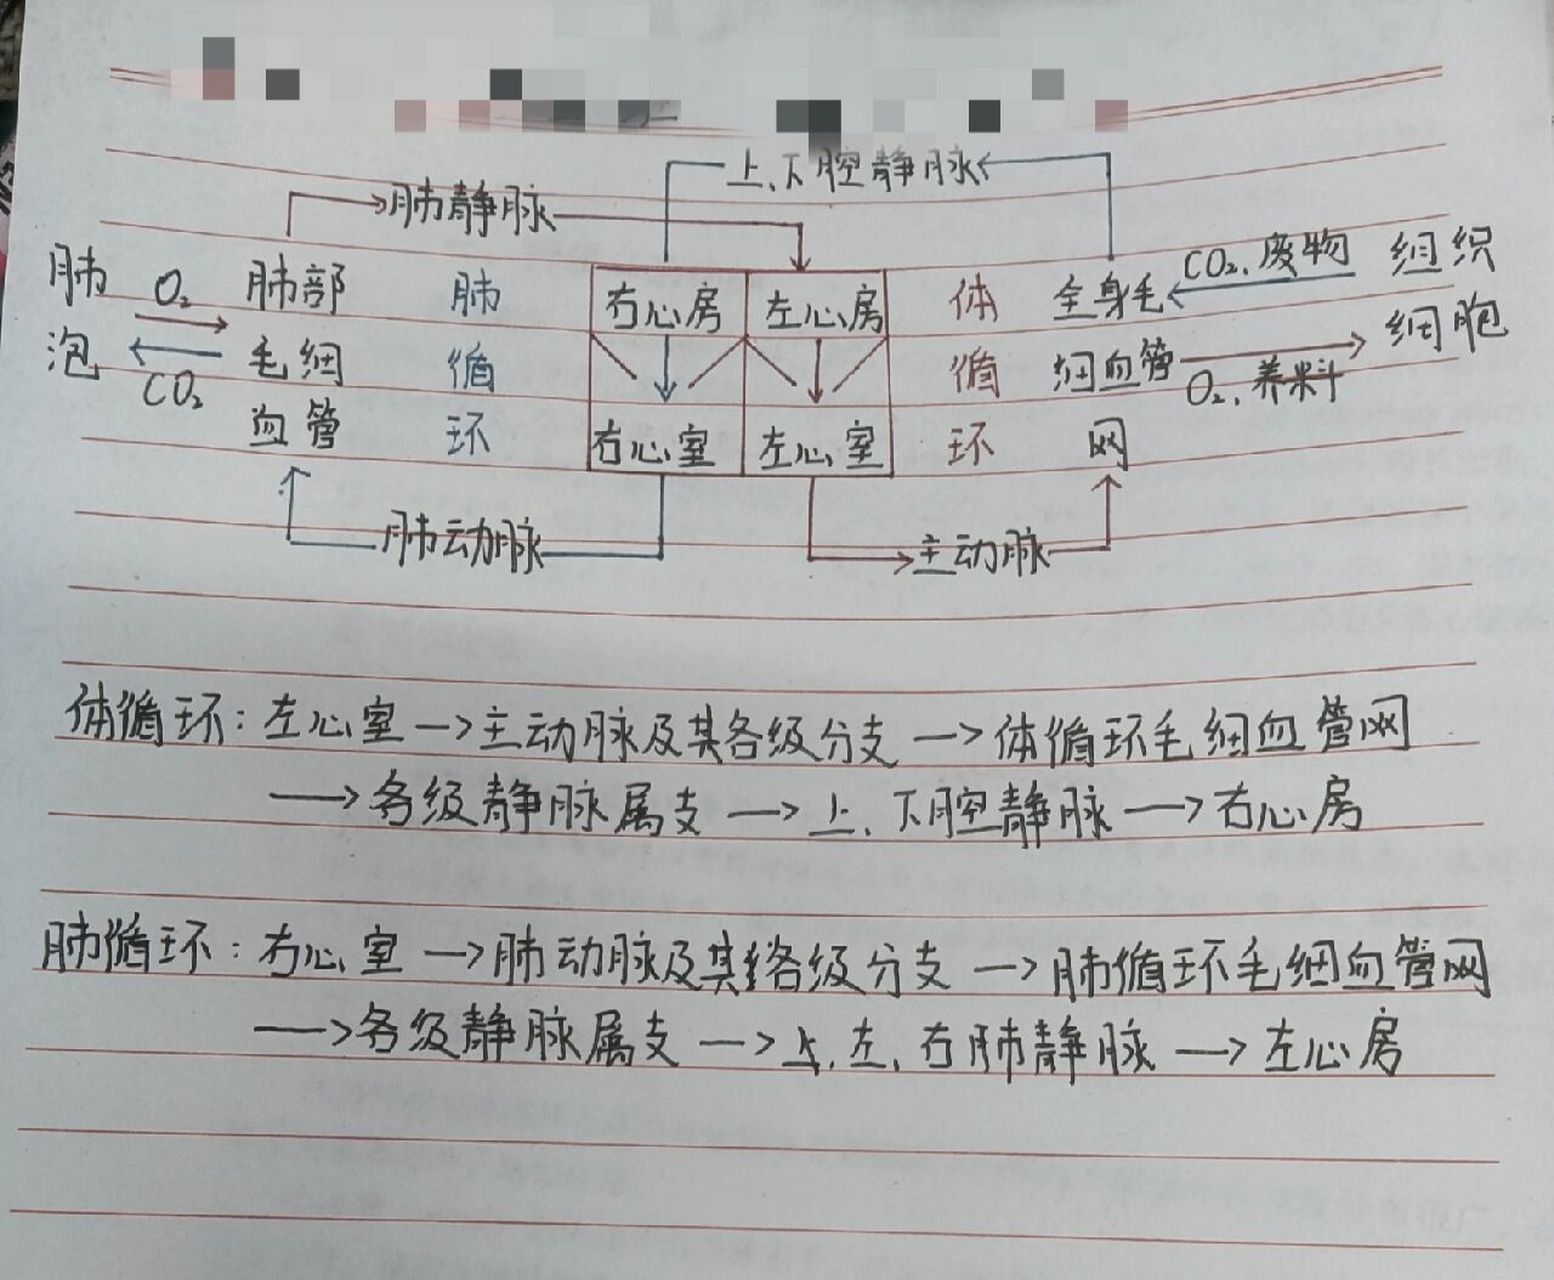 上、下腔静脉
肺静脉
肺泡 O₂ CO₂ 肺部毛细血管 肺循环 右心房 左心房 体循环 全身毛细血管网 CO₂、废物 组织细胞
右心室 左心室 O₂、养料
肺动脉 主动脉
体循环：左心室→主动脉及其各级分支→体循环毛细血管网
→各级静脉属支→上、下腔静脉→右心房
肺循环：右心室→肺动脉及其各级分支→肺循环毛细血管网
→各级静脉属支→左、右肺静脉→左心房